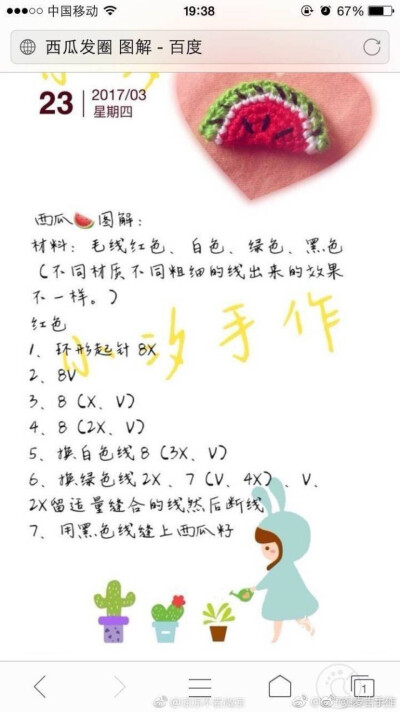 中国移动
19:38
67%
西瓜发圈 图解 - 百度
23
2017/03
星期四
西瓜🍉图解:
材料:毛线红色、白色、绿色、黑色
(不同材质不同粗细的线出来的效果
不一样。)
红色
小汐手作
1、环形起针8X
2、8V
3、8(X、V)
4、8(2X、V)
5、换白色线8(3X、V)
6、换绿色线2X、7(V、4X)、V、
2X留适量缝合的线然后断线
7、用黑色线缝上西瓜籽
1